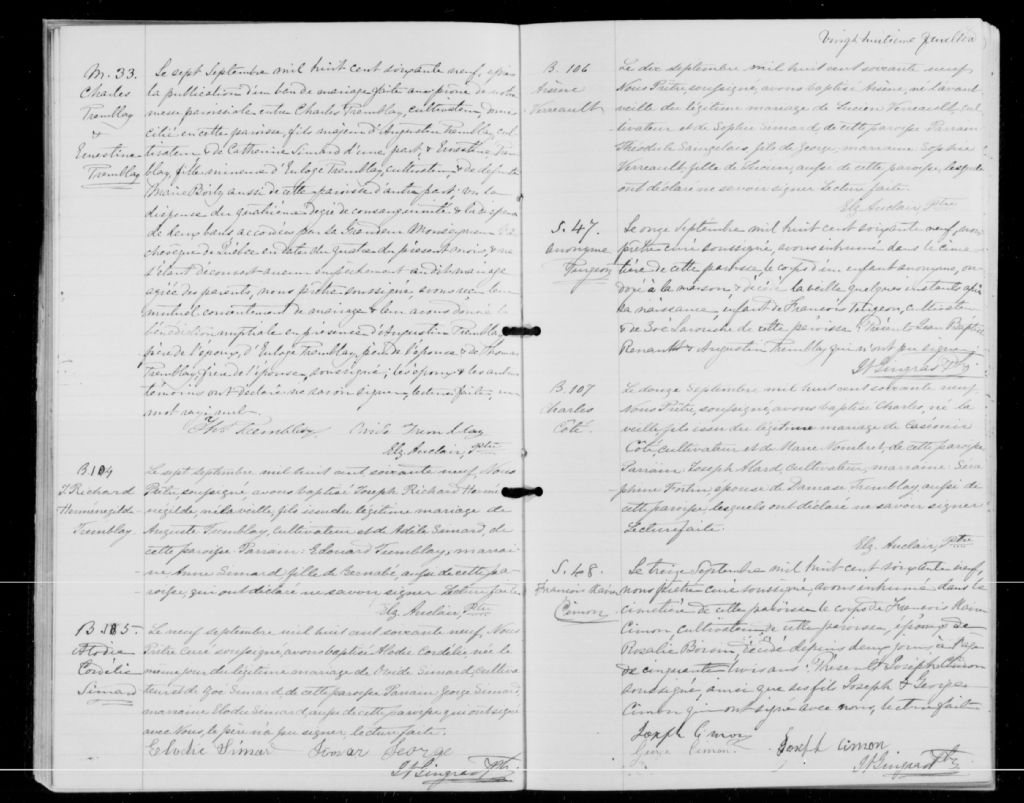 M. 33.
Charles
Tremblay
&
Ernestine
Tremblay
Le sept Septembre mil huit cent soixante neuf, après
la publication d'un ban de mariage faite au prône de notre
messe paroissiale entre Charles Tremblay, cultivateur, domi
cilié en cette paroisse, fils majeur d'Augustin Tremblay, cul
tivateur & de Catherine Simard d'une part, & Ernestine Trem
blay, fille mineure d'Euloge Tremblay, cultivateur & de défunte
Marie Boily aussi de cette paroisse d'autre part: vu la
dispense du quatrième degré de consanguinité & la dispense
de deux bans accordées par Sa Grandeur Monseigneur l'Ar
chevêque de Québec en date du quatre du présent mois, & ne
s'étant découvert aucun empêchement au dit mariage
agréé des parents, nous prêtre soussigné, avons reçu leur
mutuel consentement de mariage & leur avons donné la
bénédiction nuptiale en présence d'Augustin Tremblay
père de l'époux, d'Euloge Tremblay, père de l'épouse & de Thomas
Tremblay, frère de l'épouse, soussigné; les époux & les autres
témoins ont déclaré ne savoir signer, lecture faite. un
mot rayé nul.
Ths Tremblay Ovide Tremblay
Elz. Auclair, Ptre
B 104
J. Richard
Herménegilde
Tremblay
Le sept septembre mil huit cent soixante neuf, Nous
Prêtre, soussigné, avons baptisé Joseph Richard Hermé
négilde, né la veille, fils issu du légitime mariage de
Auguste Tremblay, cultivateur et de Adèle Simard, de
cette paroisse. Parrain: Edouard Tremblay, marrai
ne, Anne Simard fille de Bernabé, aussi de cette pa-
roisse, qui ont déclaré ne savoir signer. Lecture faite.
Elz. Auclair, Ptre
B 105.
Elodie
Cordélie
Simard
Le neuf septembre mil huit cent soixante neuf, Nous
Prêtre Curé soussigné, avons baptisé Elodie Cordélie, née le
même jour du légitime mariage de Ovide Simard, cultiva
teur et de Zoé Simard de cette paroisse Parrain George Simard,
marraine Elodie Simard, aussi de cette paroisse qui ont signé
avec Nous, le père n'a pu signer, lecture faite.
Elodie Simar Simar George
N Gingras Ptre
Vingt huitième feuillet
B. 106
Arsène
Verreault
Le dix septembre mil huit cent soixante neuf
Nous Prêtre, soussigné, avons baptisé Arsène, né l'avant
veille du légitime mariage de Lucien Verreault, cul
tivateur et de Sophie Simard de cette paroisse Parrain
Théodule Saingelais, fils de George, marraine Sophie
Verreault, fille de Lucien, aussi de cette paroisse, lesquels
ont déclaré ne savoir signer. Lecture faite.
Elz. Auclair, Ptre
S. 47.
Anonyme
Turgeon
Le onze septembre mil huit cent soixante neuf, nous
prêtre curé soussigné, avons inhumé dans le cime
tière de cette paroisse le corps d'un enfant anonyme, on
doyé à la maison & décédé la veille quelques instants après
la naissance, enfant de François Turgeon, cultivateur
& de Zoé Larouche de cette paroisse. Présents Jean Baptiste
Renault & Augustin Tremblay qui n'ont pu signer
N Gingras Ptre
B. 107
Charles
Côté.
Le douze Septembre mil huit cent soixante neuf
Nous Prêtre, soussigné, avons baptisé Charles, né la
veille, fils issu du légitime mariage de Casimir
Côté, cultivateur et de Marie Nombret, de cette paroisse
Parrain Joseph Alard, cultivateur, marraine: Séra
phine Fortin, épouse de Damase Tremblay, aussi de
cette paroisse lesquels ont déclaré ne savoir signer
Lecture faite.
Elz. Auclair, Ptre
S. 48.
François
Cimon
Le treize Septembre mil huit cent soixante neuf,
nous Prêtre Curé soussigné, avons inhumé dans le
cimetière de cette paroisse le corps de François
Cimon cultivateur de cette paroisse, époux de
Rosalie décédé depuis deux jours, à l'âge
de cinquante trois ans. Présents Joseph Cimon
soussigné, ainsi que ses fils Joseph & George
Cimon qui ont signé avec nous, lecture faite
Joseph Cimon
George Cimon. Joseph Cimon
N Gingras Ptre